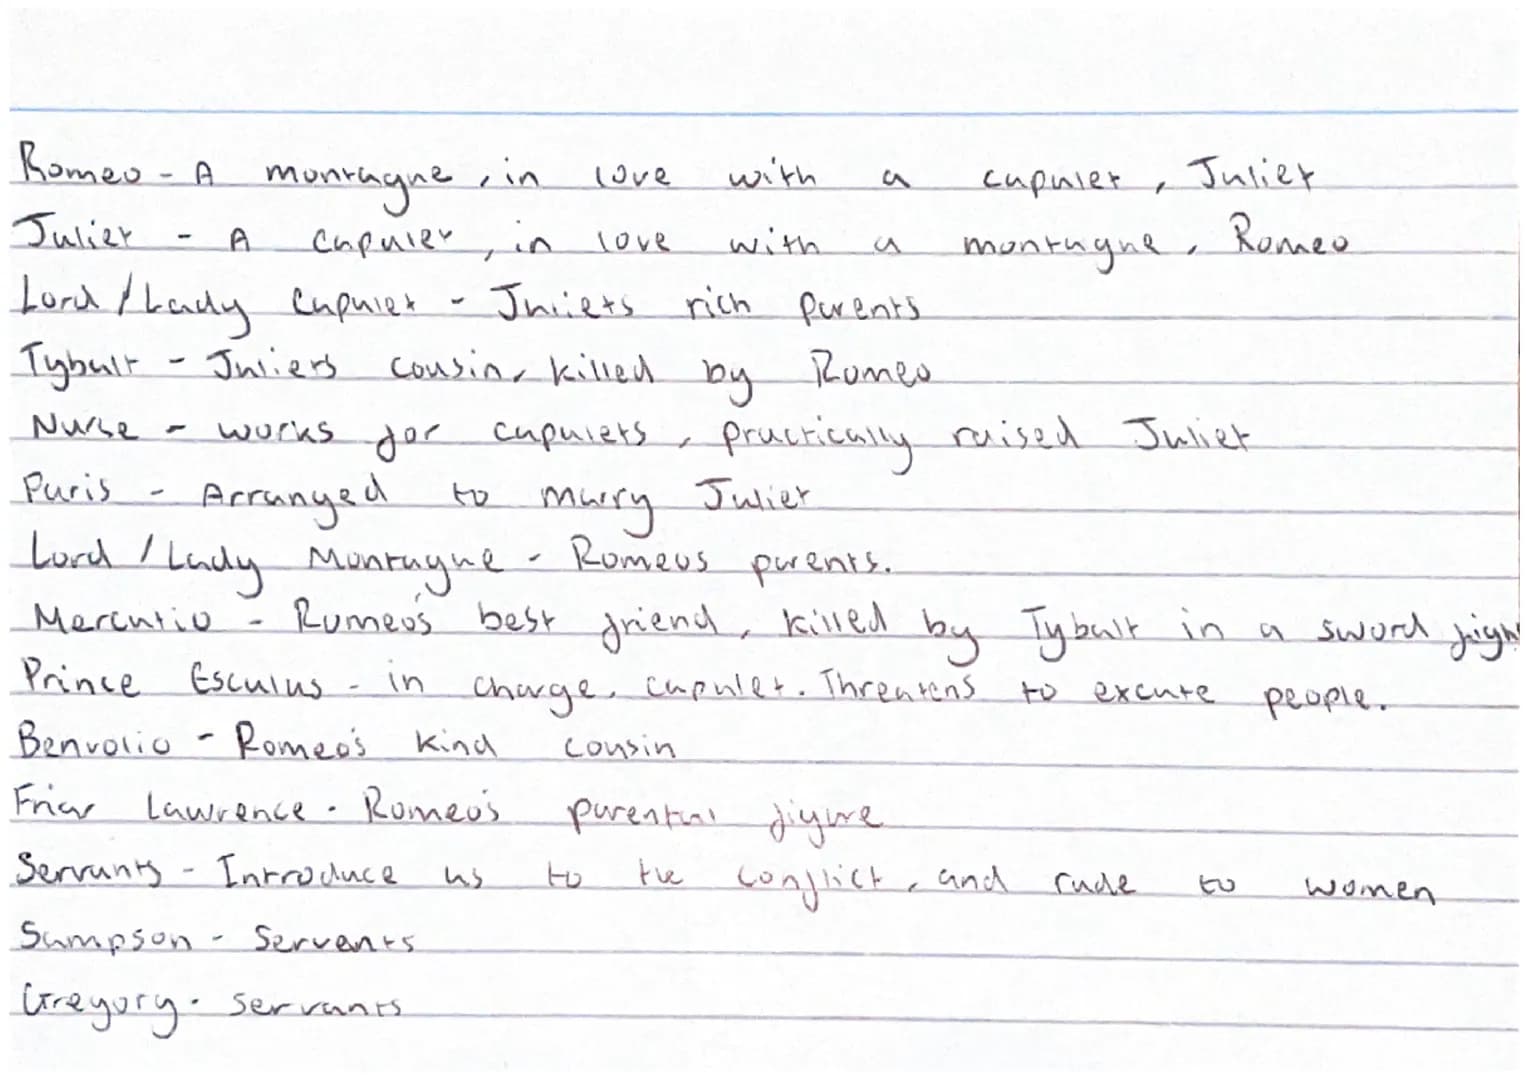 Romeo - A montague, in love with a capulet, Juliet
Juliet - A capulet, in love with a montague, Romeo
Lord / Lady Capulet - Juliets rich parents
Tybalt - Juliets cousin, killed by Romeo
Nurse - works for capulets, practically raised Juliet
Paris - Arranged to marry Juliet
Lord / Lady Montague - Romeos parents.
Mercutio - Romeo's best friend, killed by Tybalt in a sword figh
Prince Esculus - in charge, capulet. Threatens to excute people.
Benvolio - Romeo's kind cousin
Friar Lawrence - Romeo's parental figure
Servants - Introduce us to the conflict, and rude to women
Sampson - Servents
Gregory - servants